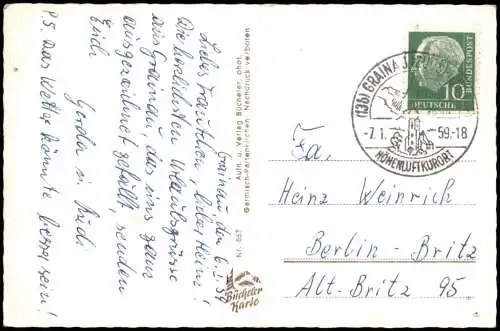 Grainau, den 6.1.59
Liebes Fräulchen, lieber Heinz!
Die herzlichsten Urlaubsgrüsse
aus Grainau, das uns ganz
ausgezeichnet gefällt, senden
Euch
Gerda u. Bud.
P.S. Das Wetter könnte besser sein!
Auth. u. Verlag Bücheler, phot.
Garmisch-Partenkirchen Nachdruck verboten
Nr. 667
Bücheler
Karte
(13b) GRAINAU
-7.1. -59-18
HÖHENLUFTKURORT
10
DEUTSCHE
BUNDESPOST
Fa.
Heinz Weinrich
Berlin-Britz
Alt-Britz 95